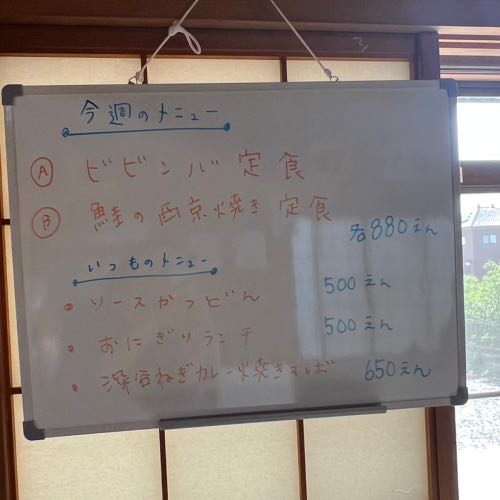 今週のメニュー
Ⓐ ビビンバ定食
Ⓑ 鮭の西京焼き定食
各880えん
いつものメニュー
・ソースかつどん 500えん
・おにぎりランチ 500えん
・深谷ねぎカレー焼きそば 650えん